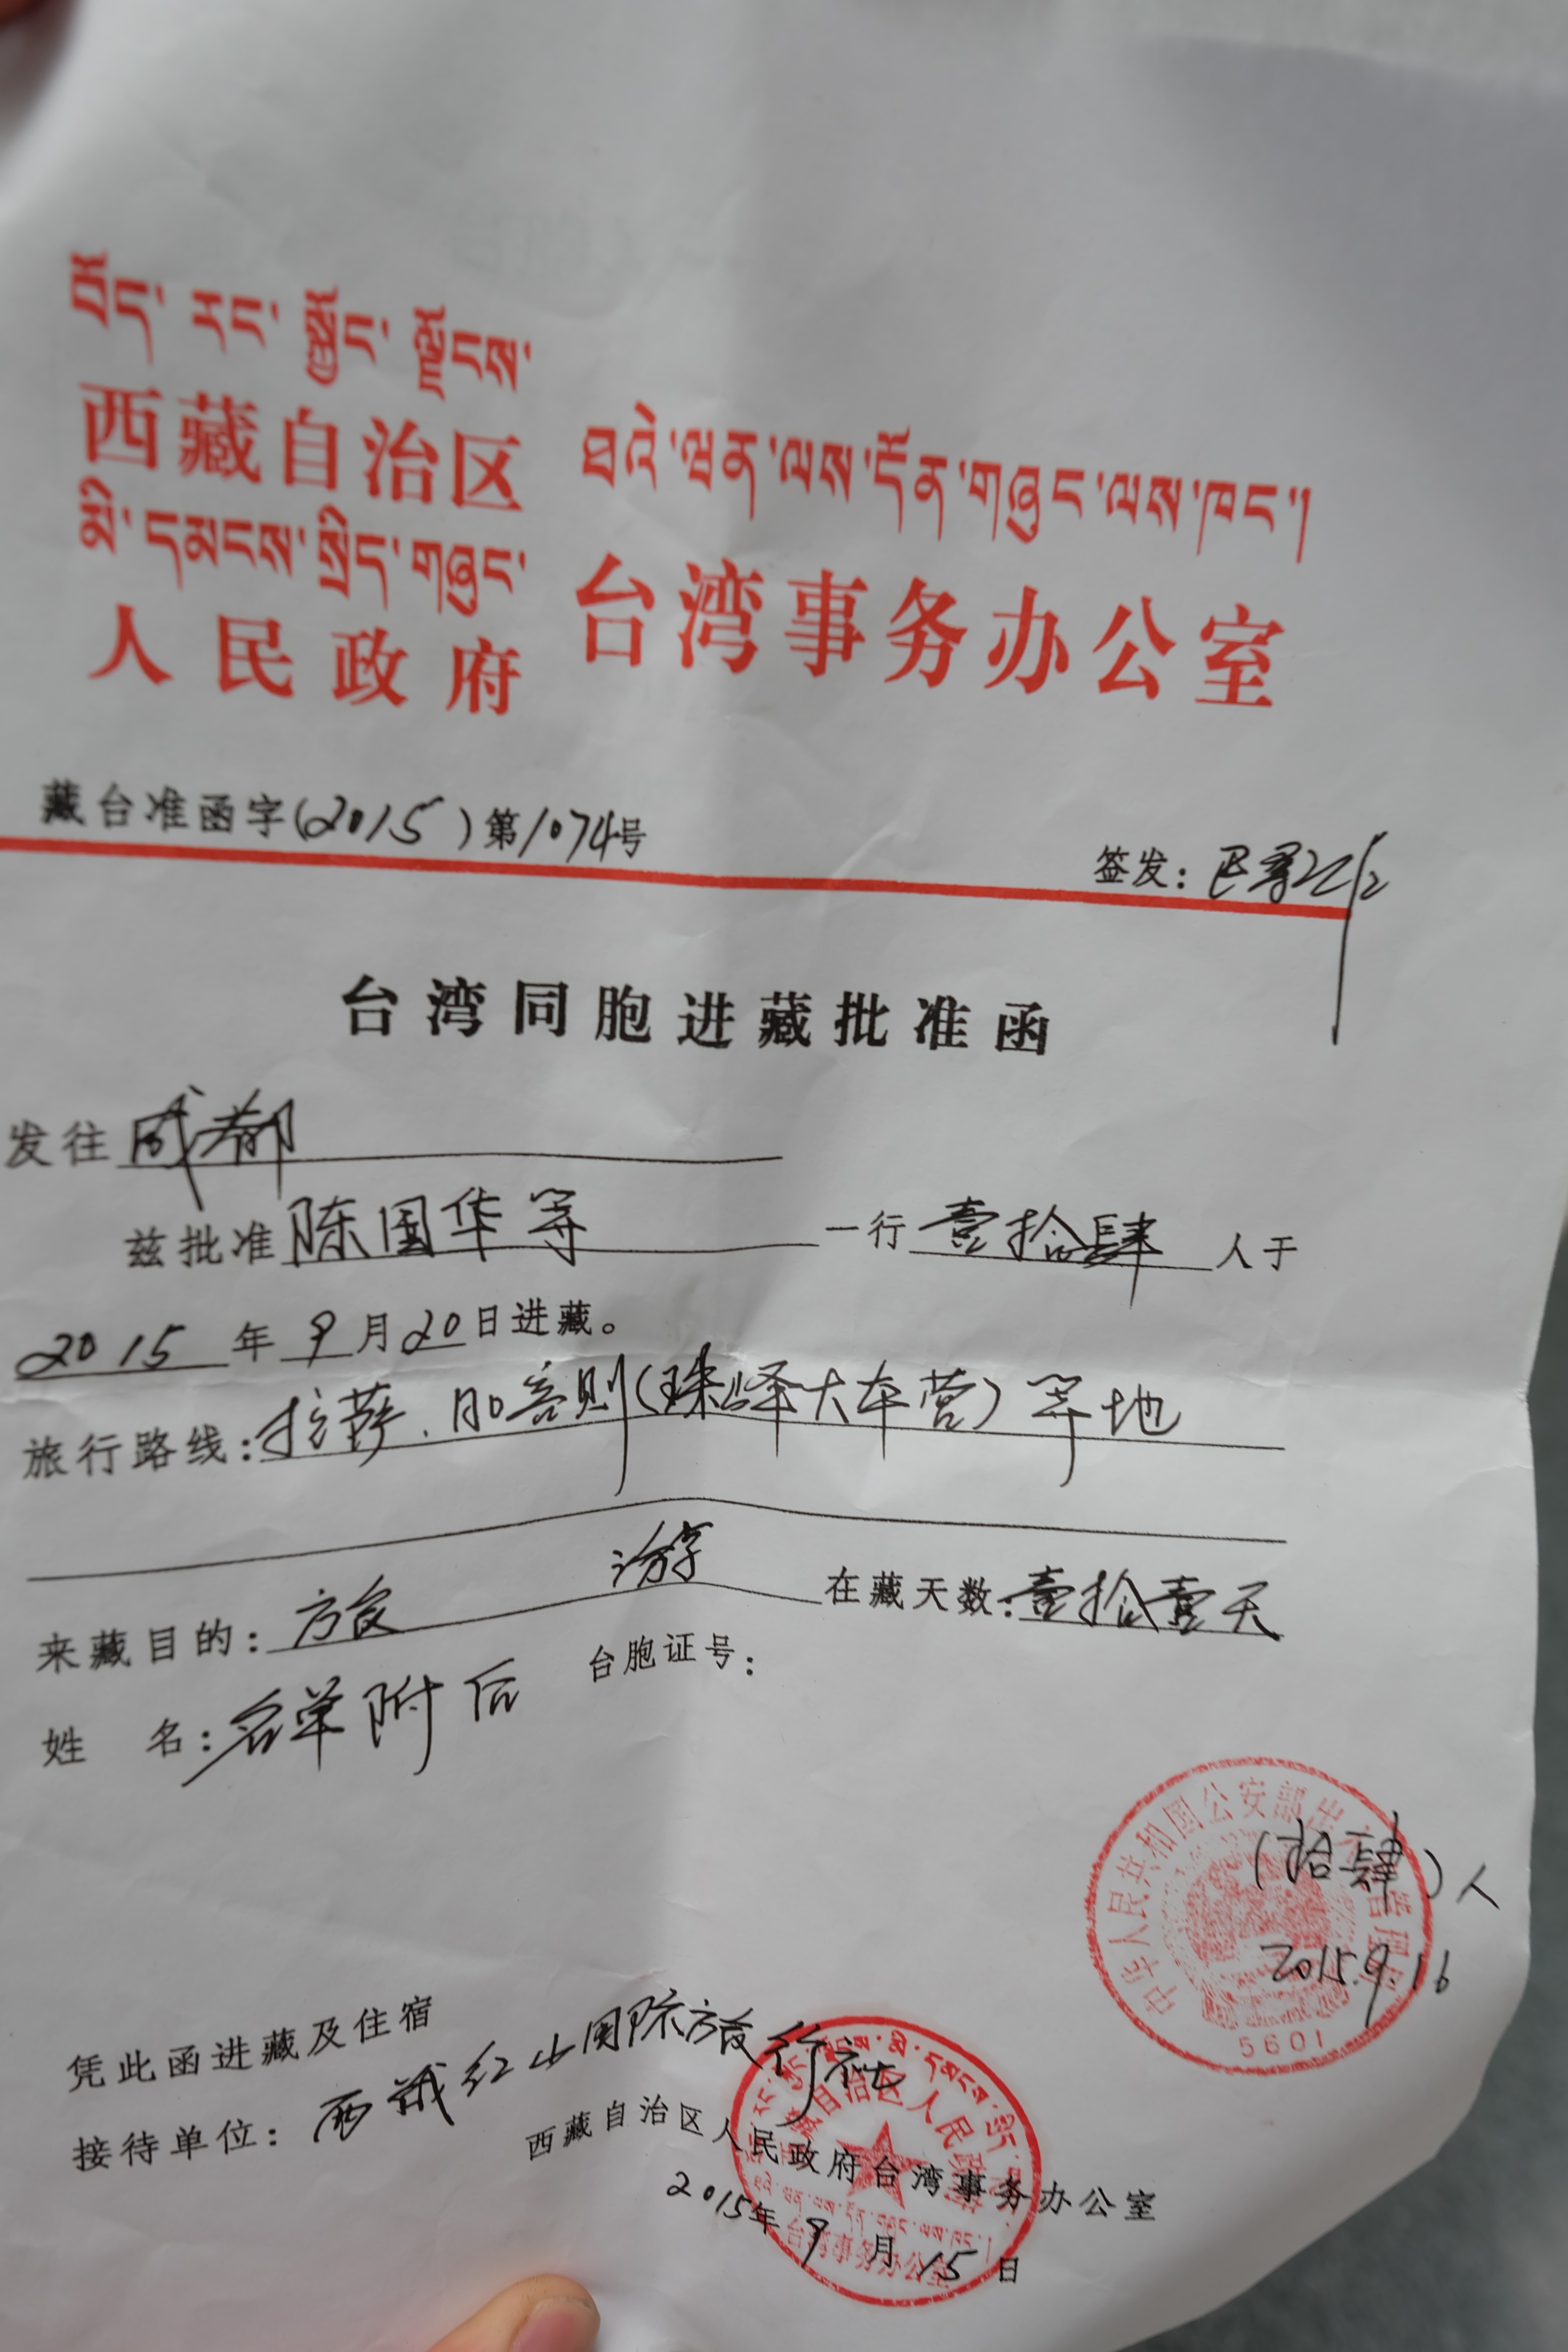 བོད་རང་སྐྱོང་ལྗོངས་
西藏自治区
མི་དམངས་སྲིད་གཞུང་
人民政府
ཐའེ་ཝན་ལས་དོན་གཞུང་ལས་ཁང་།
台湾事务办公室
藏台准函字(2015)第1074号
签发:
台湾同胞进藏批准函
发往成都
兹批准陈国华等一行壹拾肆人于
2015年9月20日进藏。
旅行路线:拉萨、日喀则(珠峰大本营)等地
来藏目的:旅游 在藏天数:壹拾壹天
姓 名:名单附后 台胞证号:
中华人民共和国公安部出
(拾肆)人
2015.9.16
5601
凭此函进藏及住宿
接待单位:西藏红山国际旅行社
西藏自治区人民政府台湾事务办公室
2015年9月15日
西藏自治区人民政府
台湾事务办公室